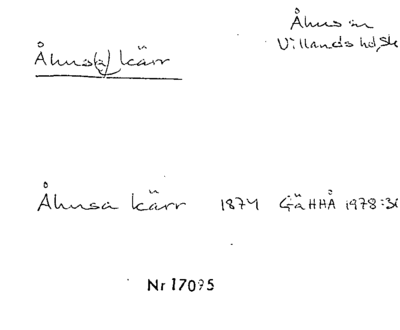 Åhus sn
Villands hd, Sk
Åhus(a) kärr
Åhusa kärr 1874 GäHHÅ 1978:30
Nr 17095